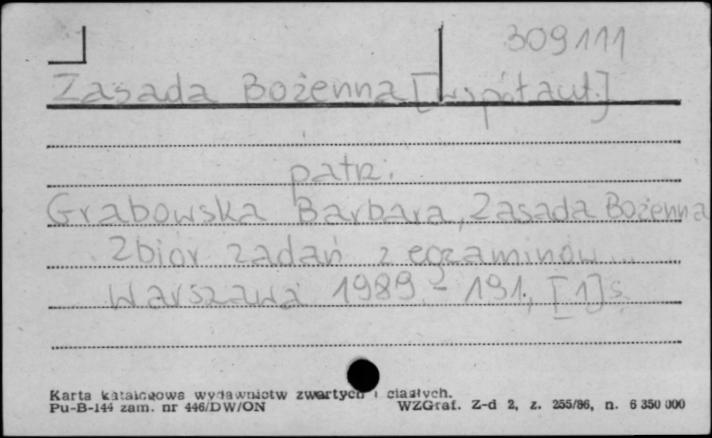 309111
Zasada Bożenna [współaut.]
patrz.
Grabowska Barbara, Zasada Bożenna
Zbiór zadań z egzaminów...
Warszawa 1989. - 191, [1] s.
Karta katalogowa wydawnictw zwartych i ciągłych.
Pu-B-144 zam. nr 446/DW/ON WZGraf. Z-d 2, z. 255/86, n. 6 350 000